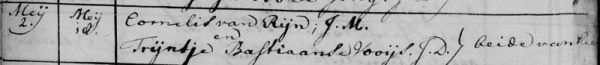 Meij 2. Meij 18. Cornelis van Rijn; J. M.
en
Trijntje Bastiaanse Vooijs. J. D. } beide van